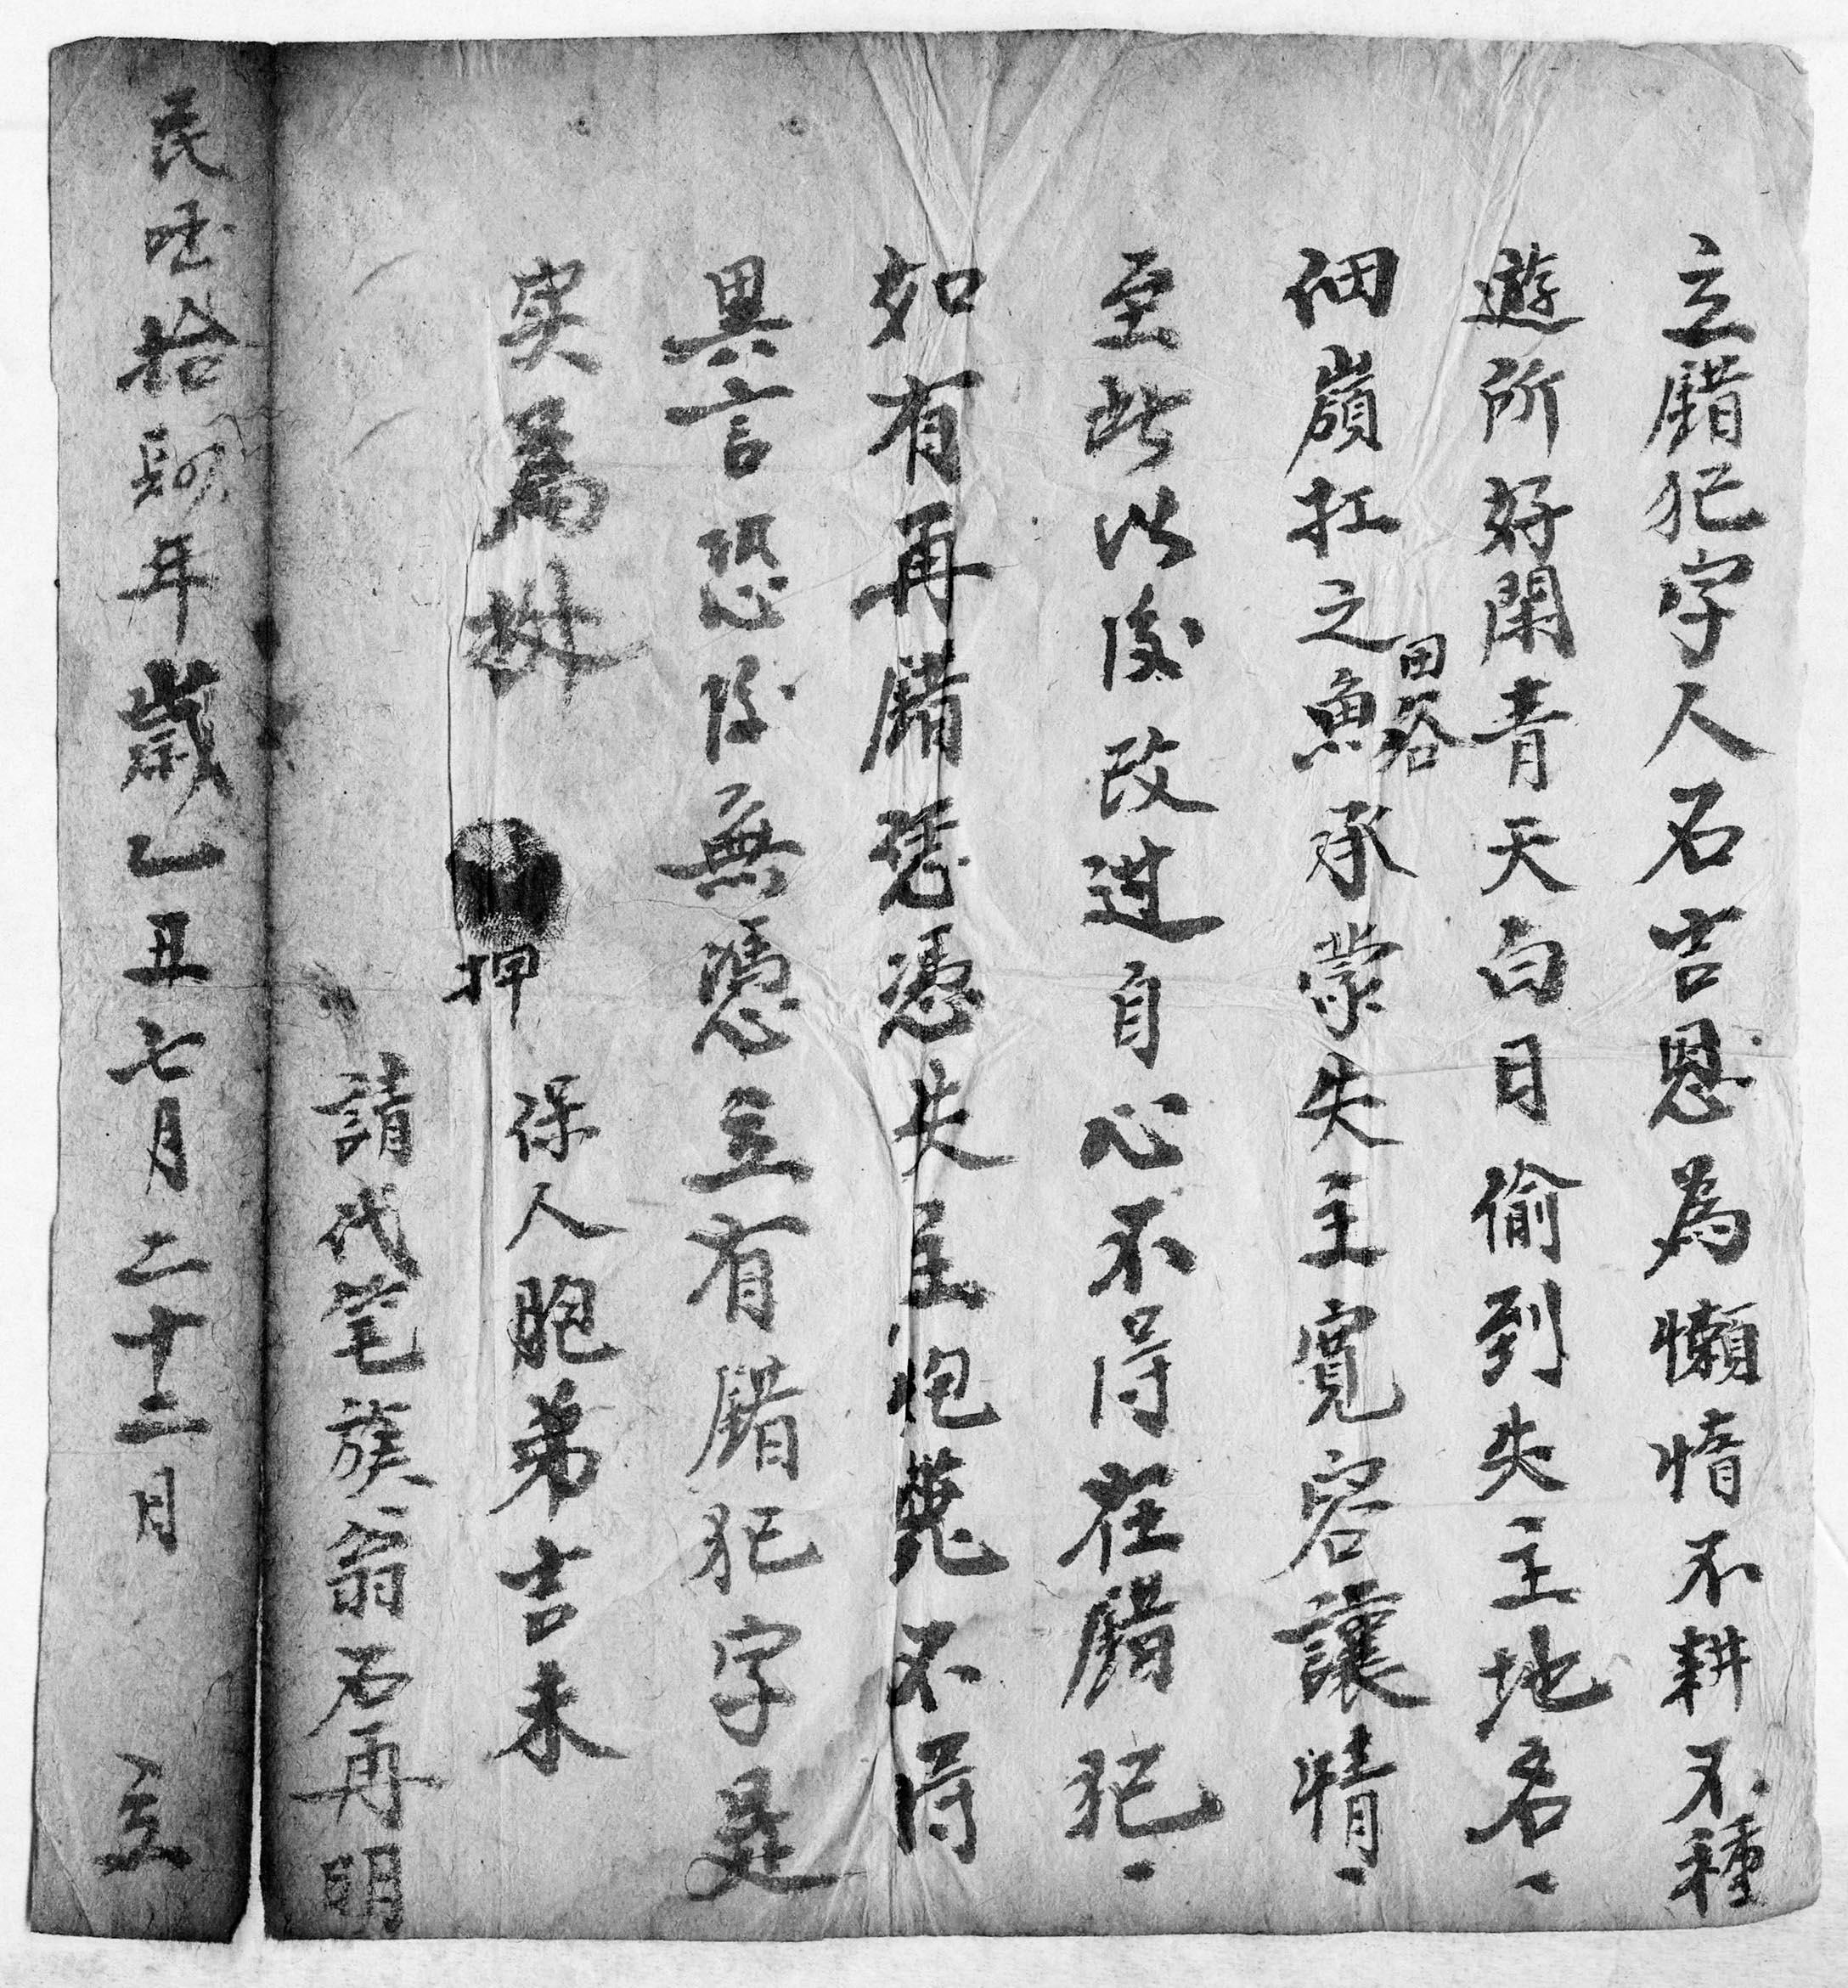 立錯犯字人石吉恩為懶惰不耕不種
遊所好閑青天白日偷到失主地名、
佃嶺扛之田谷魚承蒙失主寬容讓情、
至此以後改進自心不得在錯犯、
如有再錯憑失主炮 不得
異言恐後無憑立有錯犯字是
实為挞
押
保人胞弟吉未
請代笔族翁石再明
民 拾 年歲乙丑七月二十二月 立